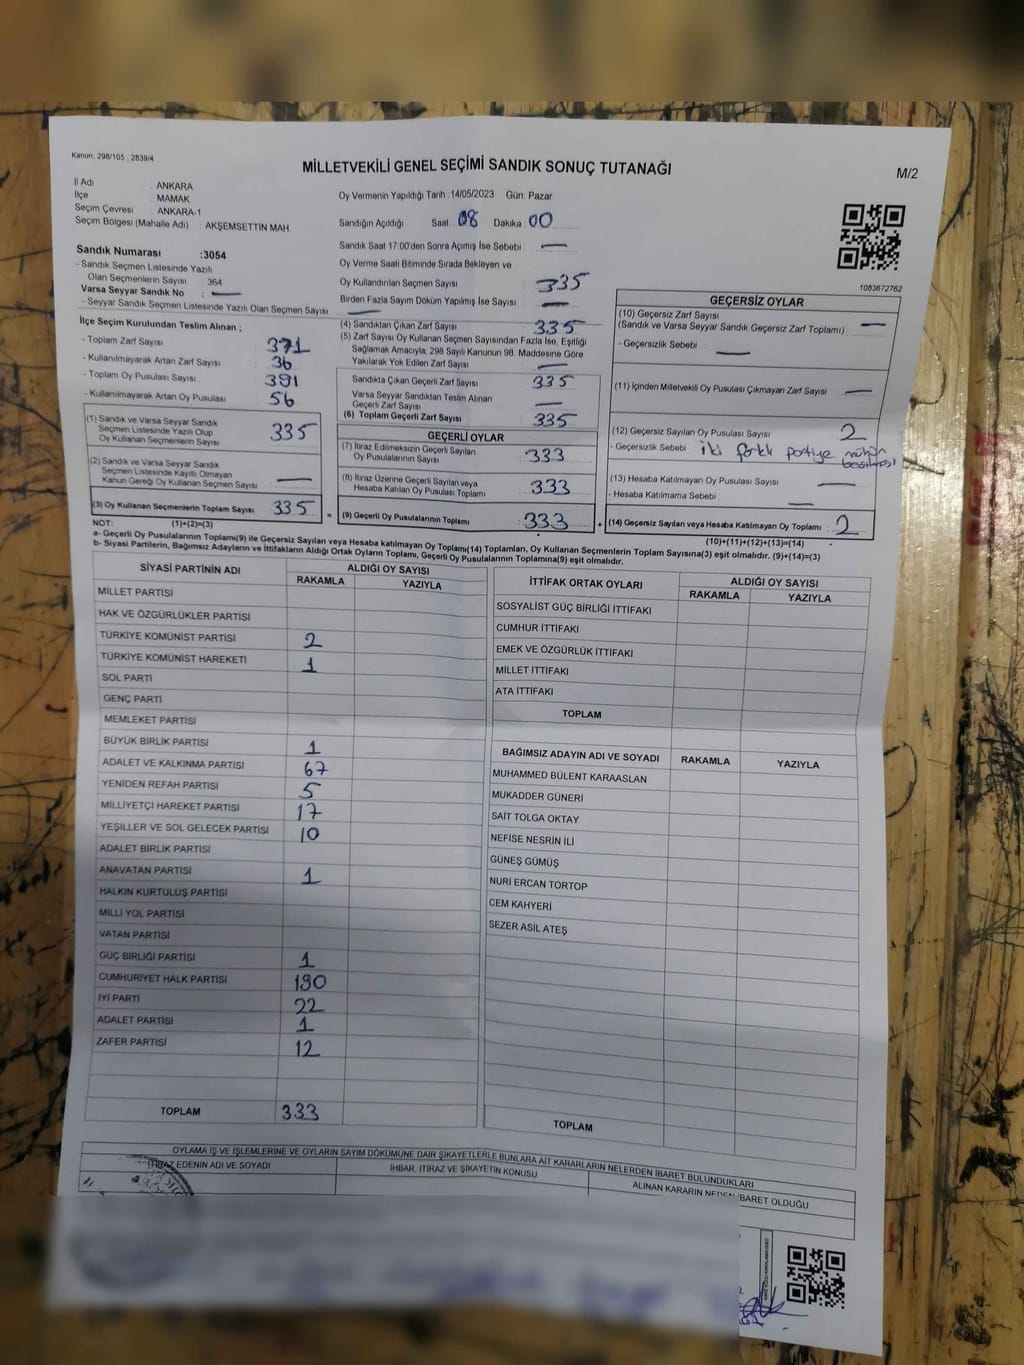 Kanun, 298/105 , 2839/4
MİLLETVEKİLİ GENEL SEÇİMİ SANDIK SONUÇ TUTANAĞI
M/2
İl Adı : ANKARA
İlçe : MAMAK
Seçim Çevresi : ANKARA-1
Seçim Bölgesi (Mahalle Adı) AKŞEMSETTİN MAH.
Oy Vermenin Yapıldığı Tarih : 14/05/2023 Gün: Pazar
Sandığın Açıldığı Saat : 08 Dakika : 00
Sandık Saat 17:00'den Sonra Açılmış İse Sebebi : —
Oy Verme Saati Bitiminde Sırada Bekleyen ve
Oy Kullandırılan Seçmen Sayısı : 335
Birden Fazla Sayım Döküm Yapılmış İse Sayısı : —
Sandık Numarası : 3054
- Sandık Seçmen Listesinde Yazılı
Olan Seçmenlerin Sayısı : 364
Varsa Seyyar Sandık No : —
- Seyyar Sandık Seçmen Listesinde Yazılı Olan Seçmen Sayısı : —
1083672762
İlçe Seçim Kurulundan Teslim Alınan ;
- Toplam Zarf Sayısı : 371
- Kullanılmayarak Artan Zarf Sayısı : 36
- Toplam Oy Pusulası Sayısı : 391
- Kullanılmayarak Artan Oy Pusulası : 56
(1) Sandık ve Varsa Seyyar Sandık
Seçmen Listesinde Yazılı Olup
Oy Kullanan Seçmenlerin Sayısı : 335
(2) Sandık ve Varsa Seyyar Sandık
Seçmen Listesinde Kayıtlı Olmayan
Kanun Gereği Oy Kullanan Seçmen Sayısı : —
(3) Oy Kullanan Seçmenlerin Toplam Sayısı : 335
(4) Sandıktan Çıkan Zarf Sayısı : 335
(5) Zarf Sayısı Oy Kullanan Seçmen Sayısından Fazla İse, Eşitliği
Sağlamak Amacıyla, 298 Sayılı Kanunun 98. Maddesine Göre
Yakılarak Yok Edilen Zarf Sayısı : —
Sandıkta Çıkan Geçerli Zarf Sayısı : 335
Varsa Seyyar Sandıktan Teslim Alınan
Geçerli Zarf Sayısı : —
(6) Toplam Geçerli Zarf Sayısı : 335
GEÇERLİ OYLAR
(7) İtiraz Edilmeksizin Geçerli Sayılan
Oy Pusulalarının Sayısı : 333
(8) İtiraz Üzerine Geçerli Sayılan veya
Hesaba Katılan Oy Pusulası Toplamı : 333
= (9) Geçerli Oy Pusulalarının Toplamı : 333 +
GEÇERSİZ OYLAR
(10) Geçersiz Zarf Sayısı
(Sandık ve Varsa Seyyar Sandık Geçersiz Zarf Toplamı) : —
- Geçersizlik Sebebi : —
(11) İçinden Milletvekili Oy Pusulası Çıkmayan Zarf Sayısı : —
(12) Geçersiz Sayılan Oy Pusulası Sayısı : 2
- Geçersizlik Sebebi : iki farklı partiye mühür
basılması
(13) Hesaba Katılmayan Oy Pusulası Sayısı : —
- Hesaba Katılmama Sebebi : —
(14) Geçersiz Sayılan veya Hesaba Katılmayan Oy Toplamı : 2
(10)+(11)+(12)+(13)=(14)
NOT: (1)+(2)=(3)
a- Geçerli Oy Pusulasının Toplamı(9) ile Geçersiz Sayılan veya Hesaba katılmayan Oy Toplamı(14) Toplamları, Oy Kullanan Seçmenlerin Toplam Sayısına(3) eşit olmalıdır. (9)+(14)=(3)
b- Siyasi Partilerin, Bağımsız Adayların ve İttifakların Aldığı Ortak Oyların Toplamı, Geçerli Oy Pusulalarının Toplamına(9) eşit olmalıdır.
SİYASİ PARTİNİN ADI ALDIĞI OY SAYISI
RAKAMLA YAZIYLA
MİLLET PARTİSİ
HAK VE ÖZGÜRLÜKLER PARTİSİ
TÜRKİYE KOMÜNİST PARTİSİ 2
TÜRKİYE KOMÜNİST HAREKETİ 1
SOL PARTİ
GENÇ PARTİ
MEMLEKET PARTİSİ
BÜYÜK BİRLİK PARTİSİ 1
ADALET VE KALKINMA PARTİSİ 67
YENİDEN REFAH PARTİSİ 5
MİLLİYETÇİ HAREKET PARTİSİ 17
YEŞİLLER VE SOL GELECEK PARTİSİ 10
ADALET BİRLİK PARTİSİ
ANAVATAN PARTİSİ 1
HALKIN KURTULUŞ PARTİSİ
MİLLİ YOL PARTİSİ
VATAN PARTİSİ
GÜÇ BİRLİĞİ PARTİSİ 1
CUMHURİYET HALK PARTİSİ 190
İYİ PARTİ 22
ADALET PARTİSİ 1
ZAFER PARTİSİ 12
TOPLAM 333
İTTİFAK ORTAK OYLARI ALDIĞI OY SAYISI
RAKAMLA YAZIYLA
SOSYALİST GÜÇ BİRLİĞİ İTTİFAKI
CUMHUR İTTİFAKI
EMEK VE ÖZGÜRLÜK İTTİFAKI
MİLLET İTTİFAKI
ATA İTTİFAKI
TOPLAM
BAĞIMSIZ ADAYIN ADI VE SOYADI RAKAMLA YAZIYLA
MUHAMMED BÜLENT KARAASLAN
MUKADDER GÜNERİ
SAİT TOLGA OKTAY
NEFİSE NESRİN İLİ
GÜNEŞ GÜMÜŞ
NURİ ERCAN TORTOP
CEM KAHYERİ
SEZER ASİL ATEŞ
TOPLAM
OYLAMA İŞ VE İŞLEMLERİNE VE OYLARIN SAYIM DÖKÜMÜNE DAİR ŞİKAYETLERLE BUNLARA AİT KARARLARIN NELERDEN İBARET BULUNDUKLARI
İTİRAZ EDENİN ADI VE SOYADI İHBAR, İTİRAZ VE ŞİKAYETİN KONUSU ALINAN KARARIN NEDEN İBARET OLDUĞU